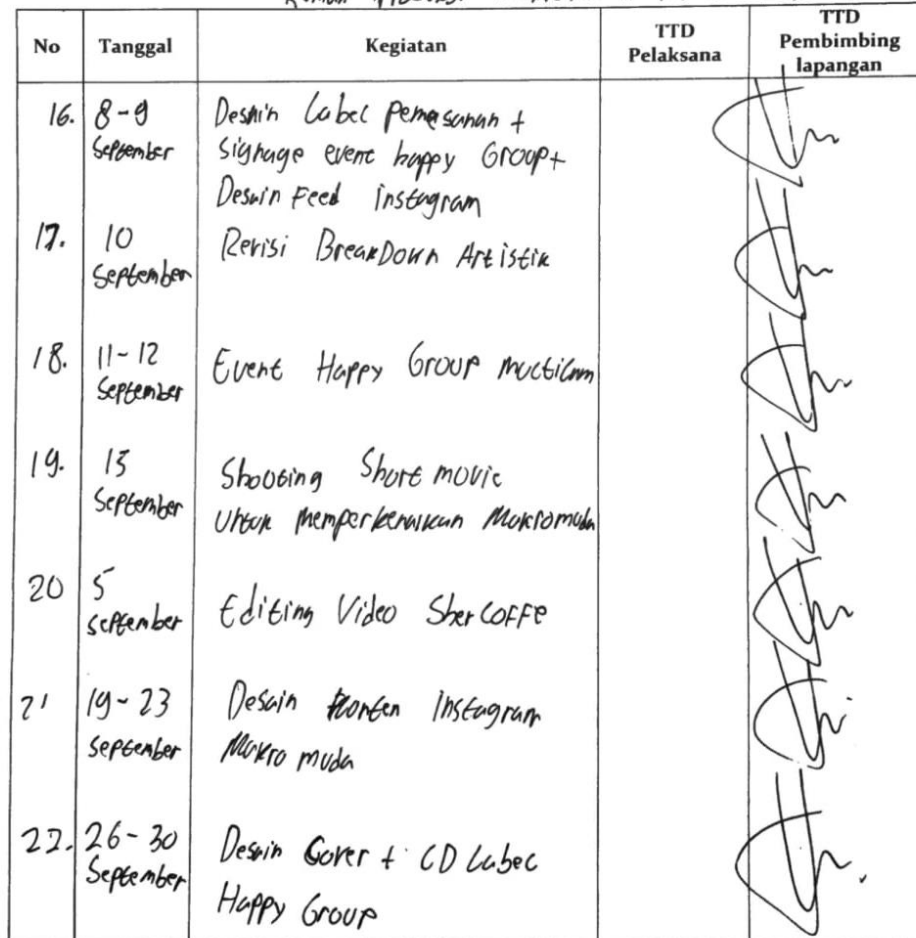 No Tanggal Kegiatan TTD Pelaksana TTD Pembimbing lapangan
16. 8-9 September Desain Label Pemesanan +
Signage event happy Group +
Desain Feed instagram
17. 10 September Revisi BreakDown Artistik
18. 11-12 September Event Happy Group multicam
19. 13 September Shooting Short movie
Untuk memperkenalkan Makromuda
20 5 September Editing Video Sher COFFE
21 19-23 September Desain Konten Instagram
Makro muda
22. 26-30 September Desain Cover + CD Label
Happy Group